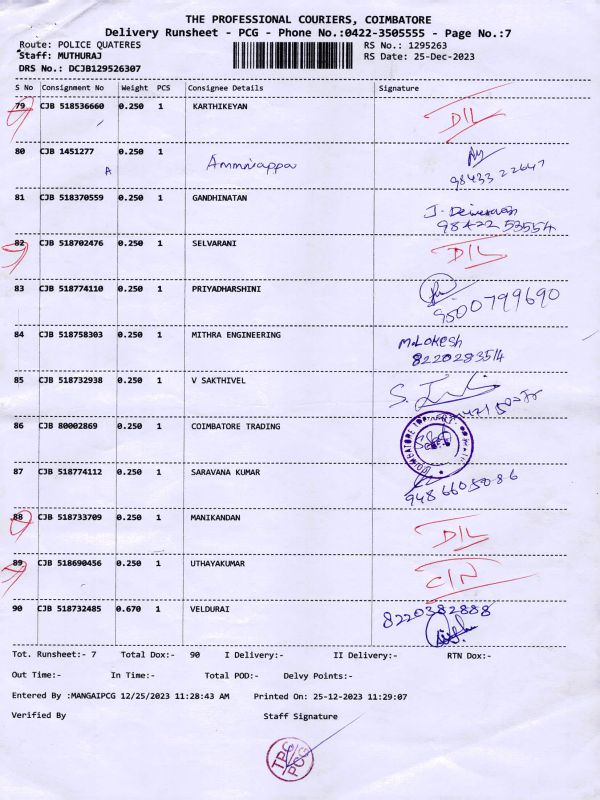 THE PROFESSIONAL COURIERS, COIMBATORE
Delivery Runsheet - PCG - Phone No.:0422-3505555 - Page No.:7
Route: POLICE QUATERES RS No.: 1295263
Staff: MUTHURAJ RS Date: 25-Dec-2023
DRS No.: DCJB129526307
S No Consignment No Weight PCS Consignee Details Signature
79 CJB 518536660 0.250 1 KARTHIKEYAN D/L
80 CJB 1451277 0.250 1 Ammniappa
A 98433 22647
81 CJB 518370559 0.250 1 GANDHINATAN
98422 53554
82 CJB 518702476 0.250 1 SELVARANI D/L
83 CJB 518774110 0.250 1 PRIYADHARSHINI 9500799690
84 CJB 518758303 0.250 1 MITHRA ENGINEERING M.Lokesh
8220283514
85 CJB 518732938 0.250 1 V SAKTHIVEL S.
86 CJB 80002869 0.250 1 COIMBATORE TRADING
87 CJB 518774112 0.250 1 SARAVANA KUMAR 948 6605086
88 CJB 518733709 0.250 1 MANIKANDAN D/L
89 CJB 518690456 0.250 1 UTHAYAKUMAR C/N
90 CJB 518732485 0.670 1 VELDURAI 8220382888
Tot. Runsheet:- 7 Total Dox:- 90 I Delivery:- II Delivery:- RTN Dox:-
Out Time:- In Time:- Total POD:- Delvy Points:-
Entered By :MANGAIPCG 12/25/2023 11:28:43 AM Printed On: 25-12-2023 11:29:07
Verified By Staff Signature
TPC
PCG